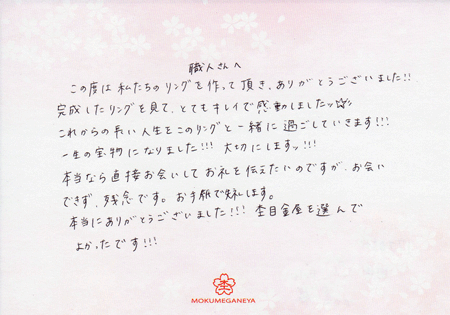 職人さんへ
この度は私たちのリングを作って頂き、ありがとうございました!!
完成したリングを見て、とてもキレイで感動しましたッ☆彡
これからの長い人生をこのリングと一緒に過ごしていきます!!!
一生の宝物になりました!!! 大切にしますッ!!!
本当なら直接お会いしてお礼を伝えたいのですが、お会い
できず、残念です。お手紙で失礼します。
本当にありがとうございました!!! 杢目金屋を選んで
よかったです!!!
MOKUMEGANEYA